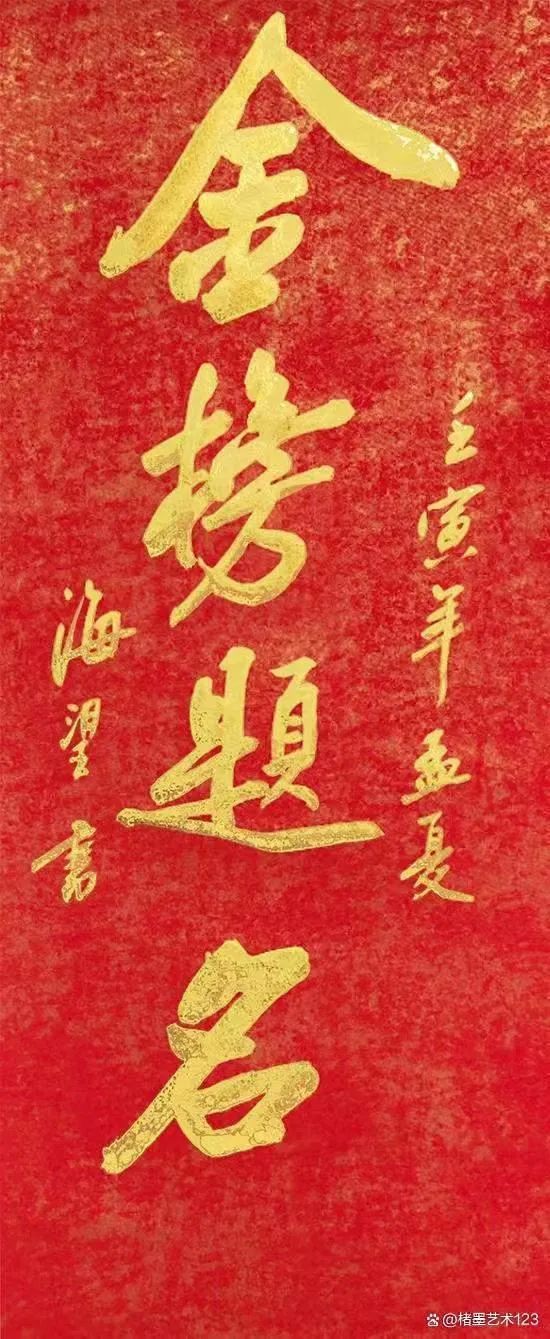 壬寅年孟夏
金榜題名
海望書
@楮墨艺术123